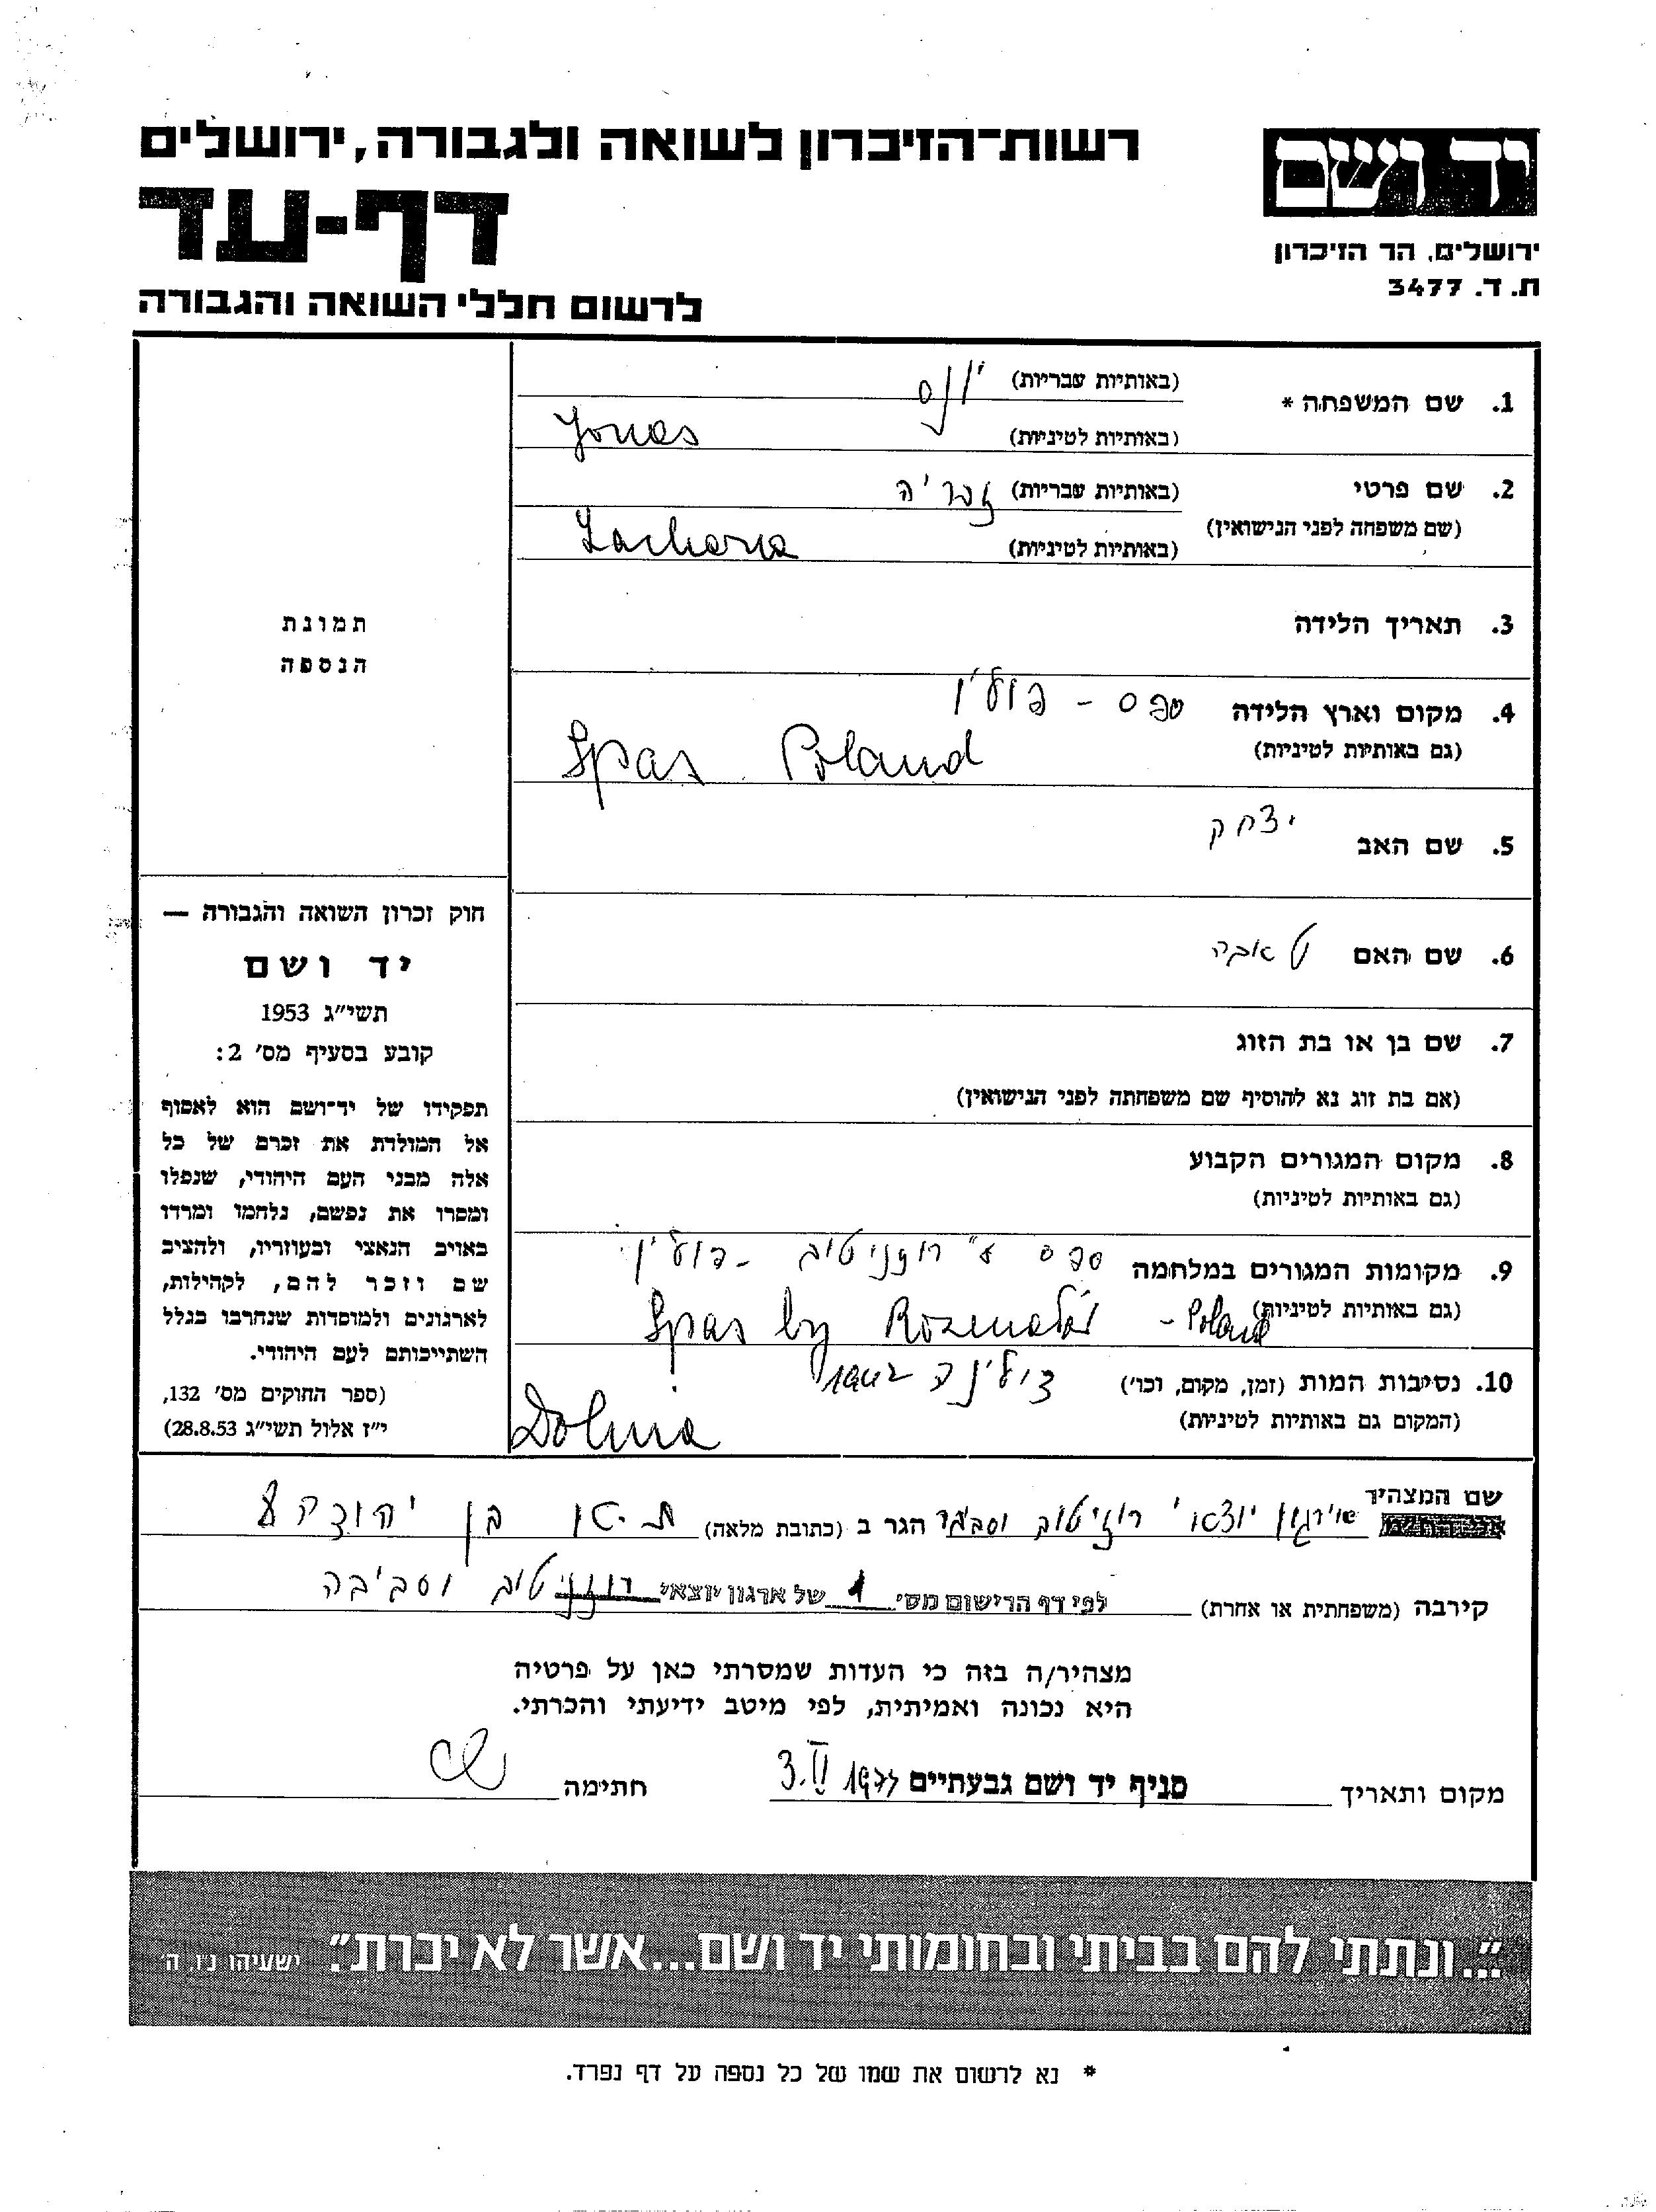 רשות־הזיכרון לשואה ולגבורה, ירושלים
יד ושם
דף-עד
ירושלים, הר הזיכרון
ת. ד. 3477
לרשום חללי השואה והגבורה
1. שם המשפחה * (באותיות עבריות) יונס
(באותיות לטיניות) Yonas
2. שם פרטי (באותיות עבריות) זכריה
(שם משפחה לפני הנישואין)
(באותיות לטיניות) Zacharia
3. תאריך הלידה
4. מקום וארץ הלידה ספס - פולין
(גם באותיות לטיניות) Spas Poland
5. שם האב יצחק
6. שם האם טאבה
7. שם בן או בת הזוג
(אם בת זוג נא להוסיף שם משפחתה לפני הנישואין)
8. מקום המגורים הקבוע
(גם באותיות לטיניות)
9. מקומות המגורים במלחמה ספס ע"י רוזניטוב - פולין
(גם באותיות לטיניות) Spas by - Poland
10. נסיבות המות (זמן, מקום, וכו') דולינה 1942
(המקום גם באותיות לטיניות) Dolina
תמונת
הנספה
חוק זכרון השואה והגבורה —
יד ושם
תשי"ג 1953
קובע בסעיף מס' 2:
תפקידו של יד־ושם הוא לאסוף
אל המולדת את זכרם של כל
אלה מבני העם היהודי, שנפלו
ומסרו את נפשם, נלחמו ומרדו
באויב הנאצי ובעוזריו, ולהציב
שם וזכר להם, לקהילות,
לארגונים ולמוסדות שנחרבו בגלל
השתייכותם לעם היהודי.
(ספר החוקים מס' 132,
י"ז אלול תשי"ג 28.8.53)
שם המצהיר
אירגון יוצאי רוזניטוב וסביבה הגר ב (כתובת מלאה) ת-א בן יהודה
קירבה (משפחתית או אחרת) לפי דף הרישום מס' 1 של ארגון יוצאי רוזניטוב וסביבה
מצהיר/ה בזה כי העדות שמסרתי כאן על פרטיה
היא נכונה ואמיתית, לפי מיטב ידיעתי והכרתי.
מקום ותאריך סניף יד ושם גבעתיים 1977 חתימה
"...ונתתי להם בביתי ובחומותי יד ושם...אשר לא יכרת". ישעיהו נ"ו, ה'
* נא לרשום את שמו של כל נספה על דף נפרד.